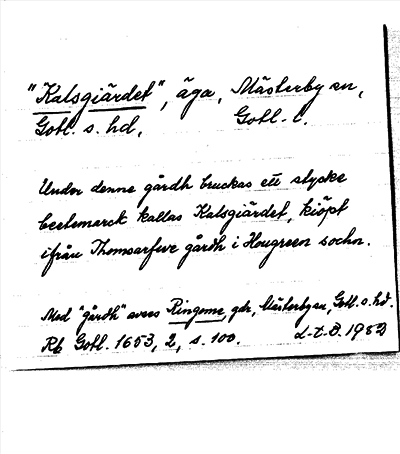 "Kalsgiärdet", äga, Mästerby sn,
Gotl. s. hd, Gotl. l.
Under denne gårdh bruckas ett stycke
beetesmarck kallas Kalsgiärdet, kiöpt
ifrån Thomsarfwe gårdh i Hougreen sochn.
Med "gårdh" avses Ringome, gdr, Mästerby sn, Gotl. s. hd.
Rb Gotl. 1653, 2, s. 100. 1952